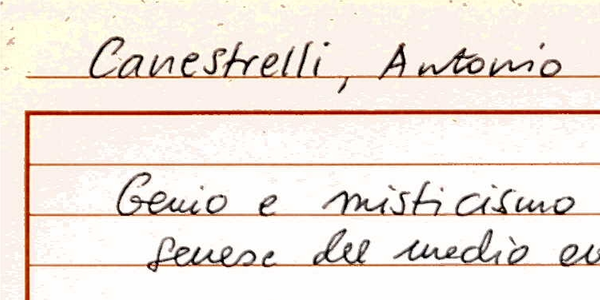 Canestrelli, Antonio
Genio e misticismo
senese del medio ev